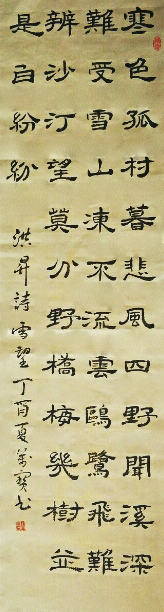 寒色孤村暮悲風四野聞溪深
難受雪山凍不流雲鷗鷺飛難
辨沙汀望莫分野橋梅幾樹並
是白紛紛
洪昇詩雪望丁酉夏萬寶书